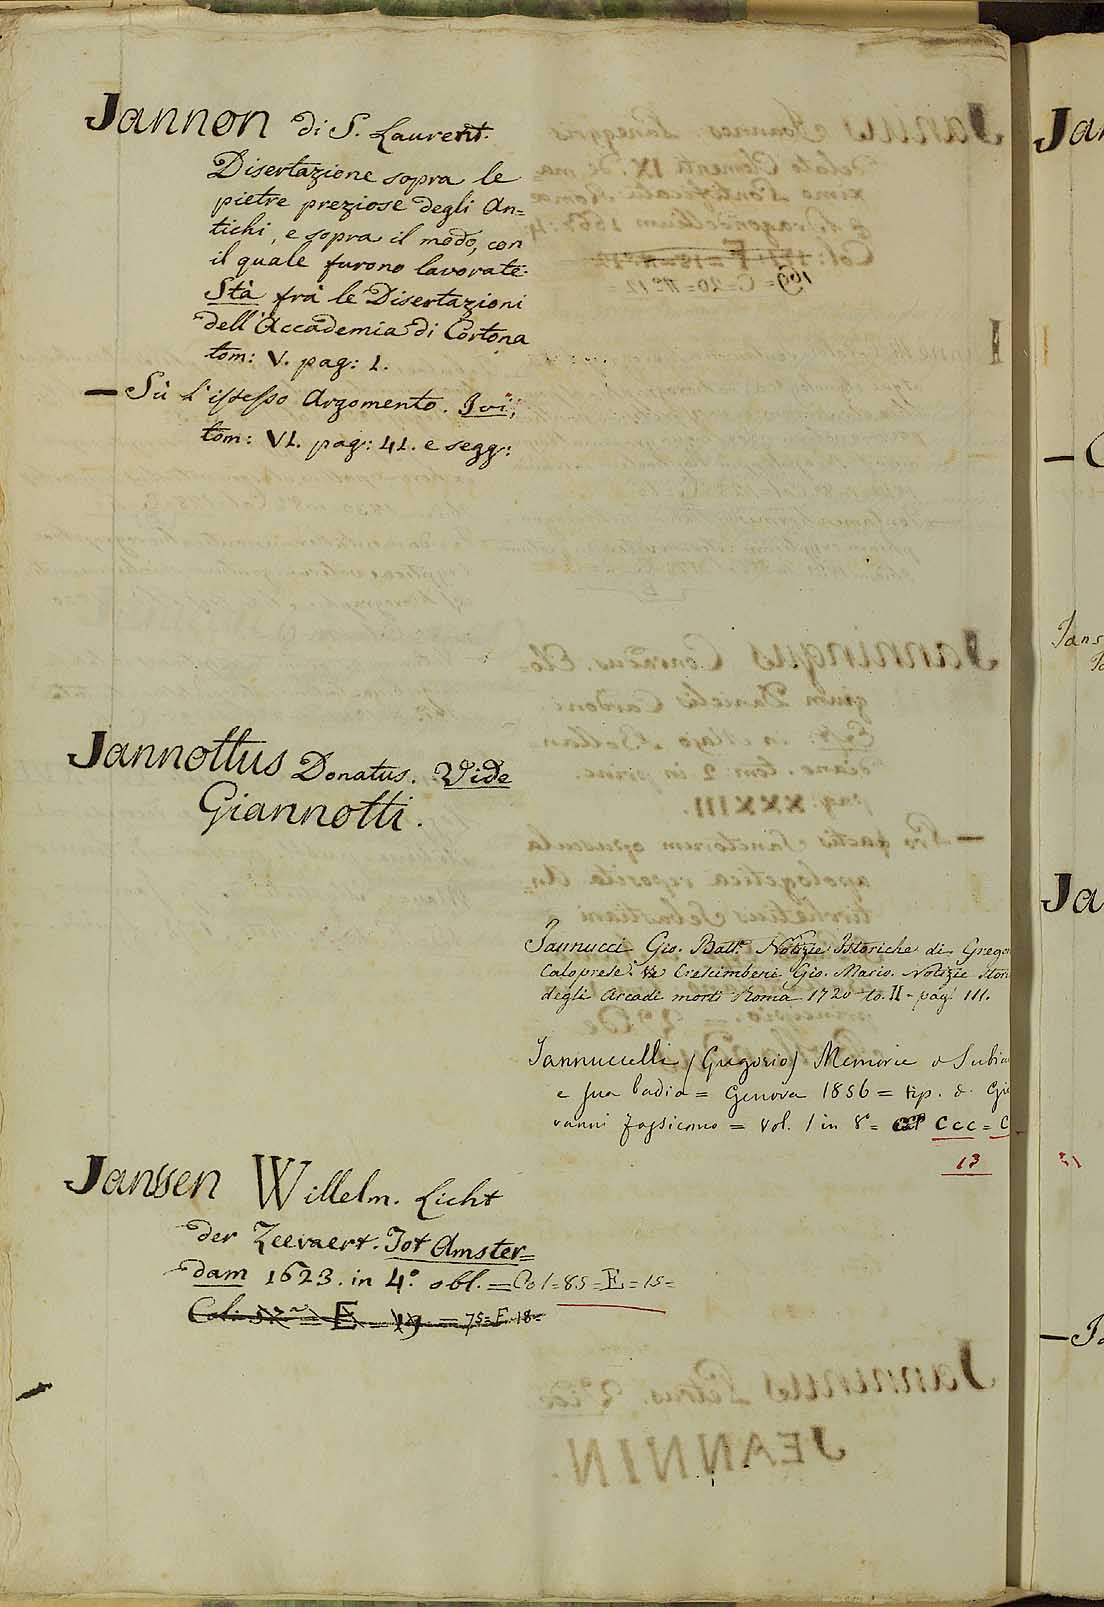 Jannon di S. Laurent.
Disertazione sopra le
pietre preziose degli An=
tichi, e sopra il modo, con
il quale furono lavorate.
Stà frà le Disertazioni
dell'Accademia di Cortona
tom: V. pag: 1.
— Sù l'istesso Argomento. Ivi,
tom: VI. pag: 41. e segg:
Jannottus Donatus. Vide
Giannotti.
Jannucci Gio. Batt.ª Notizie Istoriche di Grego
Caloprese. Crescimbeni Gio. Mario. Notizie Stor
degli Arcadi morti Roma 1720 to. II - pag. 111.
Jannuccelli (Gregorio) Memorie d Subia
e sua badia = Genova 1856 = tip. d. Gio
vanni Fassicomo = vol. 1 in 8º = CCC = C
13
Janssen Willelm. Licht
der Zeevaert. Tot Amster=
dam 1623. in 4.º obl. = Col = 85 = E = 15 =
Col: E = 19 = 75 = E. 18 =
Jan
— C
Jans
Ja
— Ja